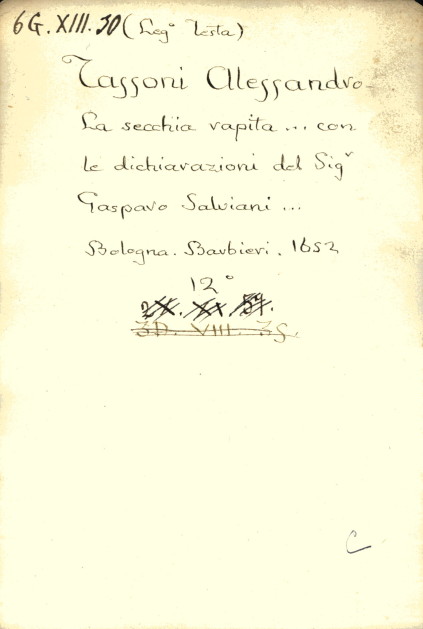 6G.XIII.30 (Leg.º Testa)
Tassoni Alessandro
La secchia rapita ... con
le dichiarazioni del Sigʳ
Gasparo Salviani ...
Bologna. Barbieri. 1652
12°
3D. VIII. 39.
C